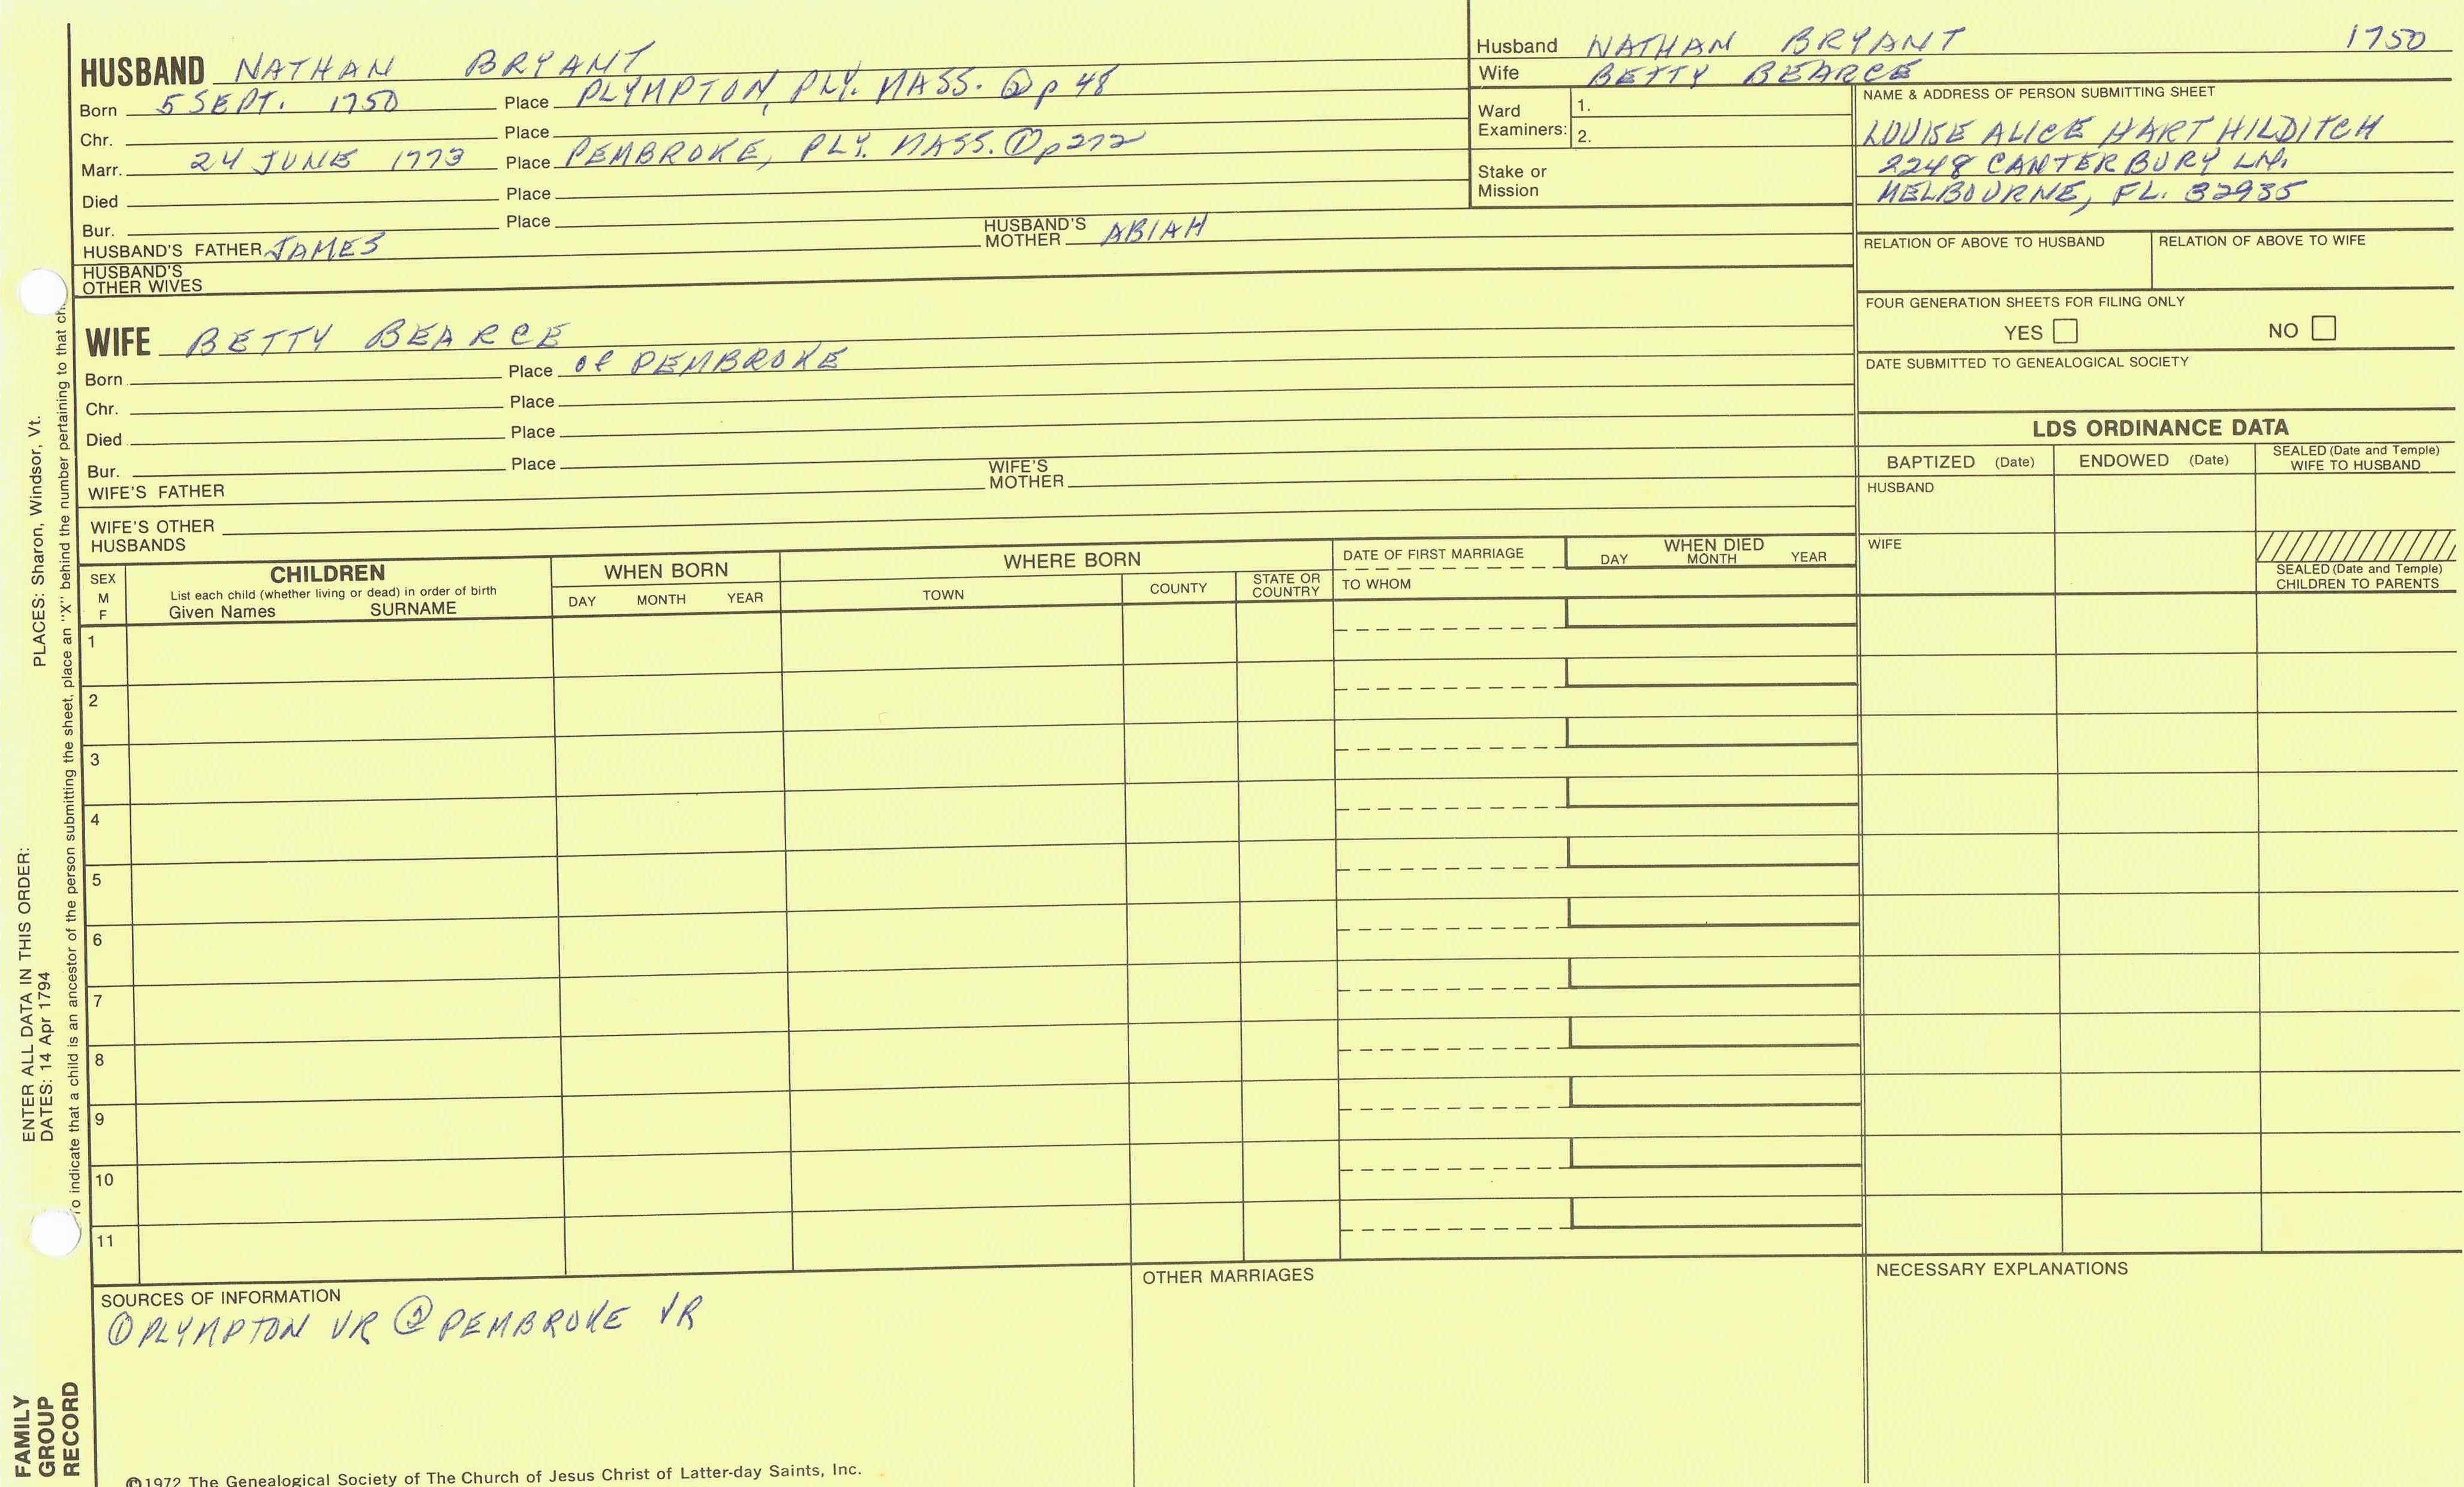 HUSBAND NATHAN BRYANT
Born 5 SEPT. 1750 Place PLYMPTON, PLY. MASS. ② p 48
Chr. Place
Marr. 24 JUNE 1773 Place PEMBROKE, PLY. MASS. ① p272
Died Place
Bur. Place
HUSBAND'S FATHER JAMES HUSBAND'S MOTHER ABIAH
HUSBAND'S
OTHER WIVES
Husband NATHAN BRYANT 1750
Wife BETTY BEARCE
Ward
Examiners:
1.
2.
Stake or
Mission
NAME & ADDRESS OF PERSON SUBMITTING SHEET
LOUISE ALICE HART HILDITCH
2248 CANTERBURY LN.
MELBOURNE, FL. 32935
RELATION OF ABOVE TO HUSBAND RELATION OF ABOVE TO WIFE
FOUR GENERATION SHEETS FOR FILING ONLY
YES NO
DATE SUBMITTED TO GENEALOGICAL SOCIETY
WIFE BETTY BEARCE
Born Place of PEMBROKE
Chr. Place
Died Place
Bur. Place
WIFE'S FATHER WIFE'S MOTHER
WIFE'S OTHER
HUSBANDS
LDS ORDINANCE DATA
BAPTIZED (Date) ENDOWED (Date) SEALED (Date and Temple)
WIFE TO HUSBAND
HUSBAND
WIFE
SEALED (Date and Temple)
CHILDREN TO PARENTS
SEX
M
F
CHILDREN
List each child (whether living or dead) in order of birth
Given Names SURNAME
WHEN BORN
DAY MONTH YEAR
WHERE BORN
TOWN COUNTY STATE OR
COUNTRY
DATE OF FIRST MARRIAGE
TO WHOM
WHEN DIED
DAY MONTH YEAR
1
2
3
4
5
6
7
8
9
10
11
SOURCES OF INFORMATION
① PLYMPTON VR ② PEMBROKE VR
OTHER MARRIAGES
NECESSARY EXPLANATIONS
©1972 The Genealogical Society of The Church of Jesus Christ of Latter-day Saints, Inc.
FAMILY
GROUP
RECORD
ENTER ALL DATA IN THIS ORDER:
DATES: 14 Apr 1794
PLACES: Sharon, Windsor, Vt.
To indicate that a child is an ancestor of the person submitting the sheet, place an "X" behind the number pertaining to that